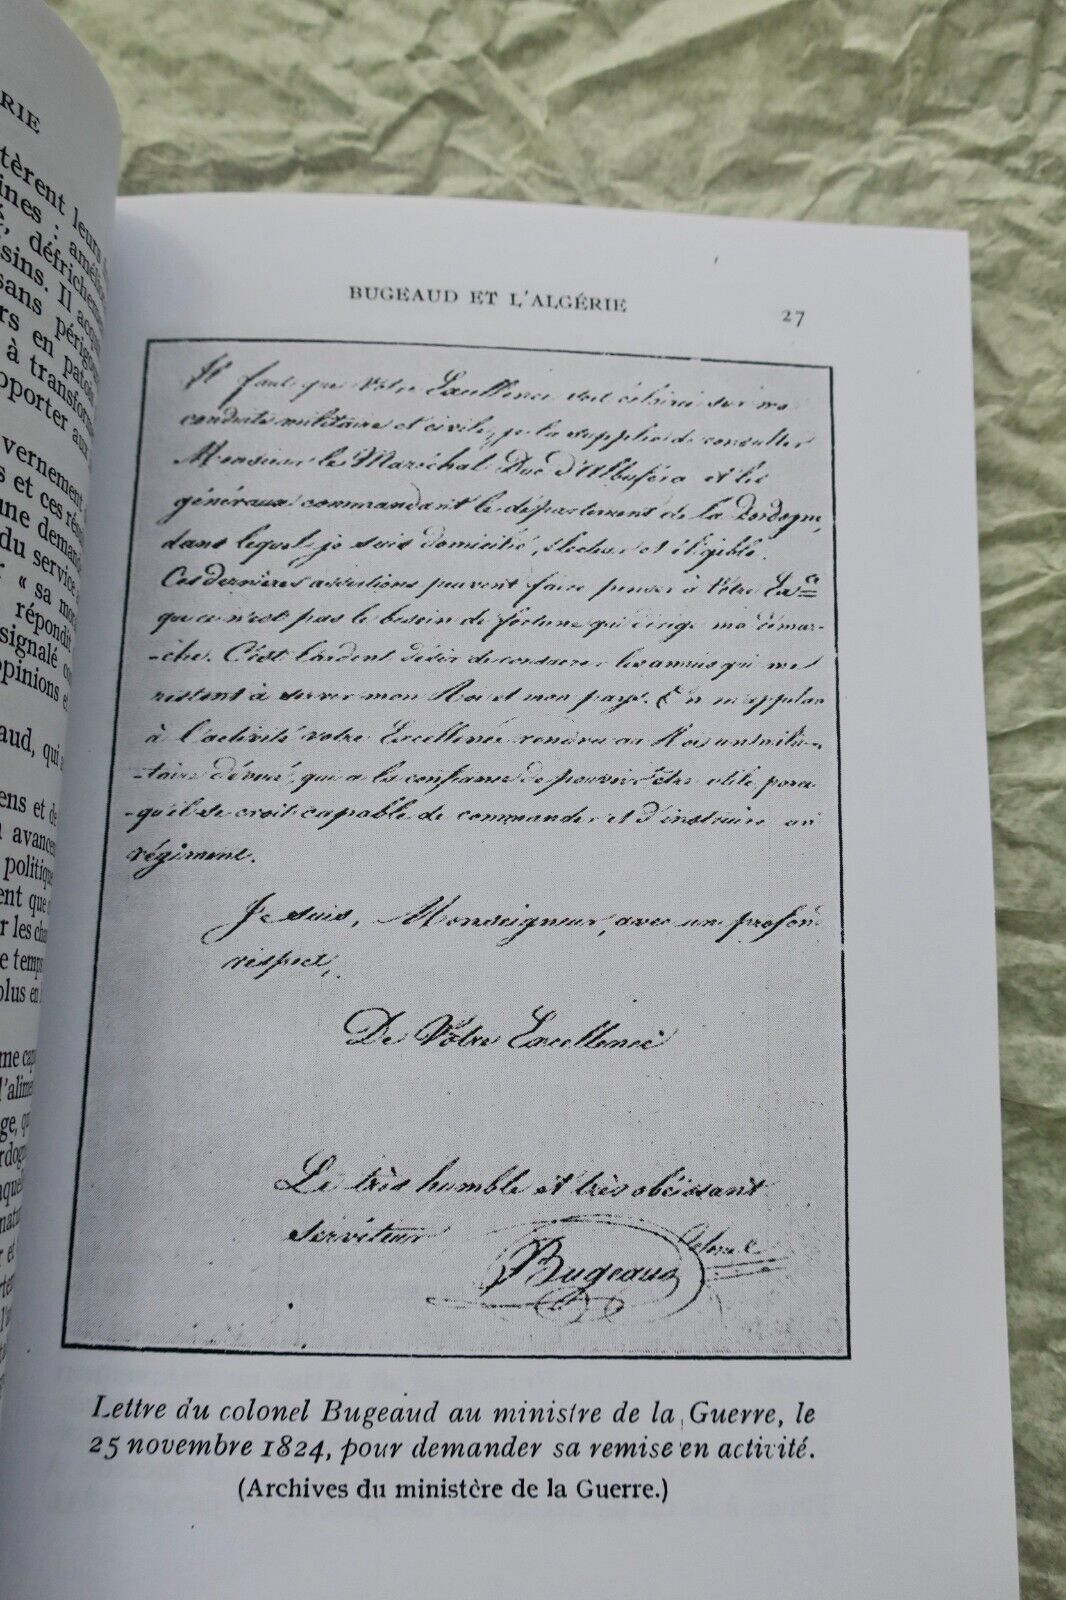 RIE
tèrent leurs
ines : amélio
é, défrichemen
sins. Il acqu
sans périgou
rs en patoi
à transforme
pporter aux
vernement
s et ces rés
une demand
du service
« sa mon
répondit
signalé co
opinions et
aud, qui
ens et de
avancem
politique
ent que
r les cha
e temps
plus en
me cap
l'alime
ge, qu
rdogn
aquel
natu
r et
rten
l'
BUGEAUD ET L'ALGÉRIE
27
Il faut que Votre Excellence soit éclairée sur ma
conduite militaire et civile, je la supplie de consulter
Monsieur le Maréchal Duc d'Albuféra et les
généraux commandant le département de la Dordogne,
dans lequel je suis domicilié, électeur et éligible.
Ces dernières assertions peuvent faire penser à Votre Ex.ce
que ce n'est pas le besoin de fortune qui dirige ma démar-
-che. C'est l'ardent désir de consacrer les années qui me
restent à servir mon Roi et mon pays. En m'appelant
à l'activité votre Excellence rendra au Roi un mili-
-taire dévoué, qui a la confiance de pouvoir être utile parce
-qu'il se croit capable de commander et d'instruire un
régiment.
Je suis, Monseigneur, avec un profond
respect,
De Votre Excellence
Le très humble et très obéissant
serviteur
Colonel
Bugeaud
Lettre du colonel Bugeaud au ministre de la Guerre, le
25 novembre 1824, pour demander sa remise en activité.
(Archives du ministère de la Guerre.)